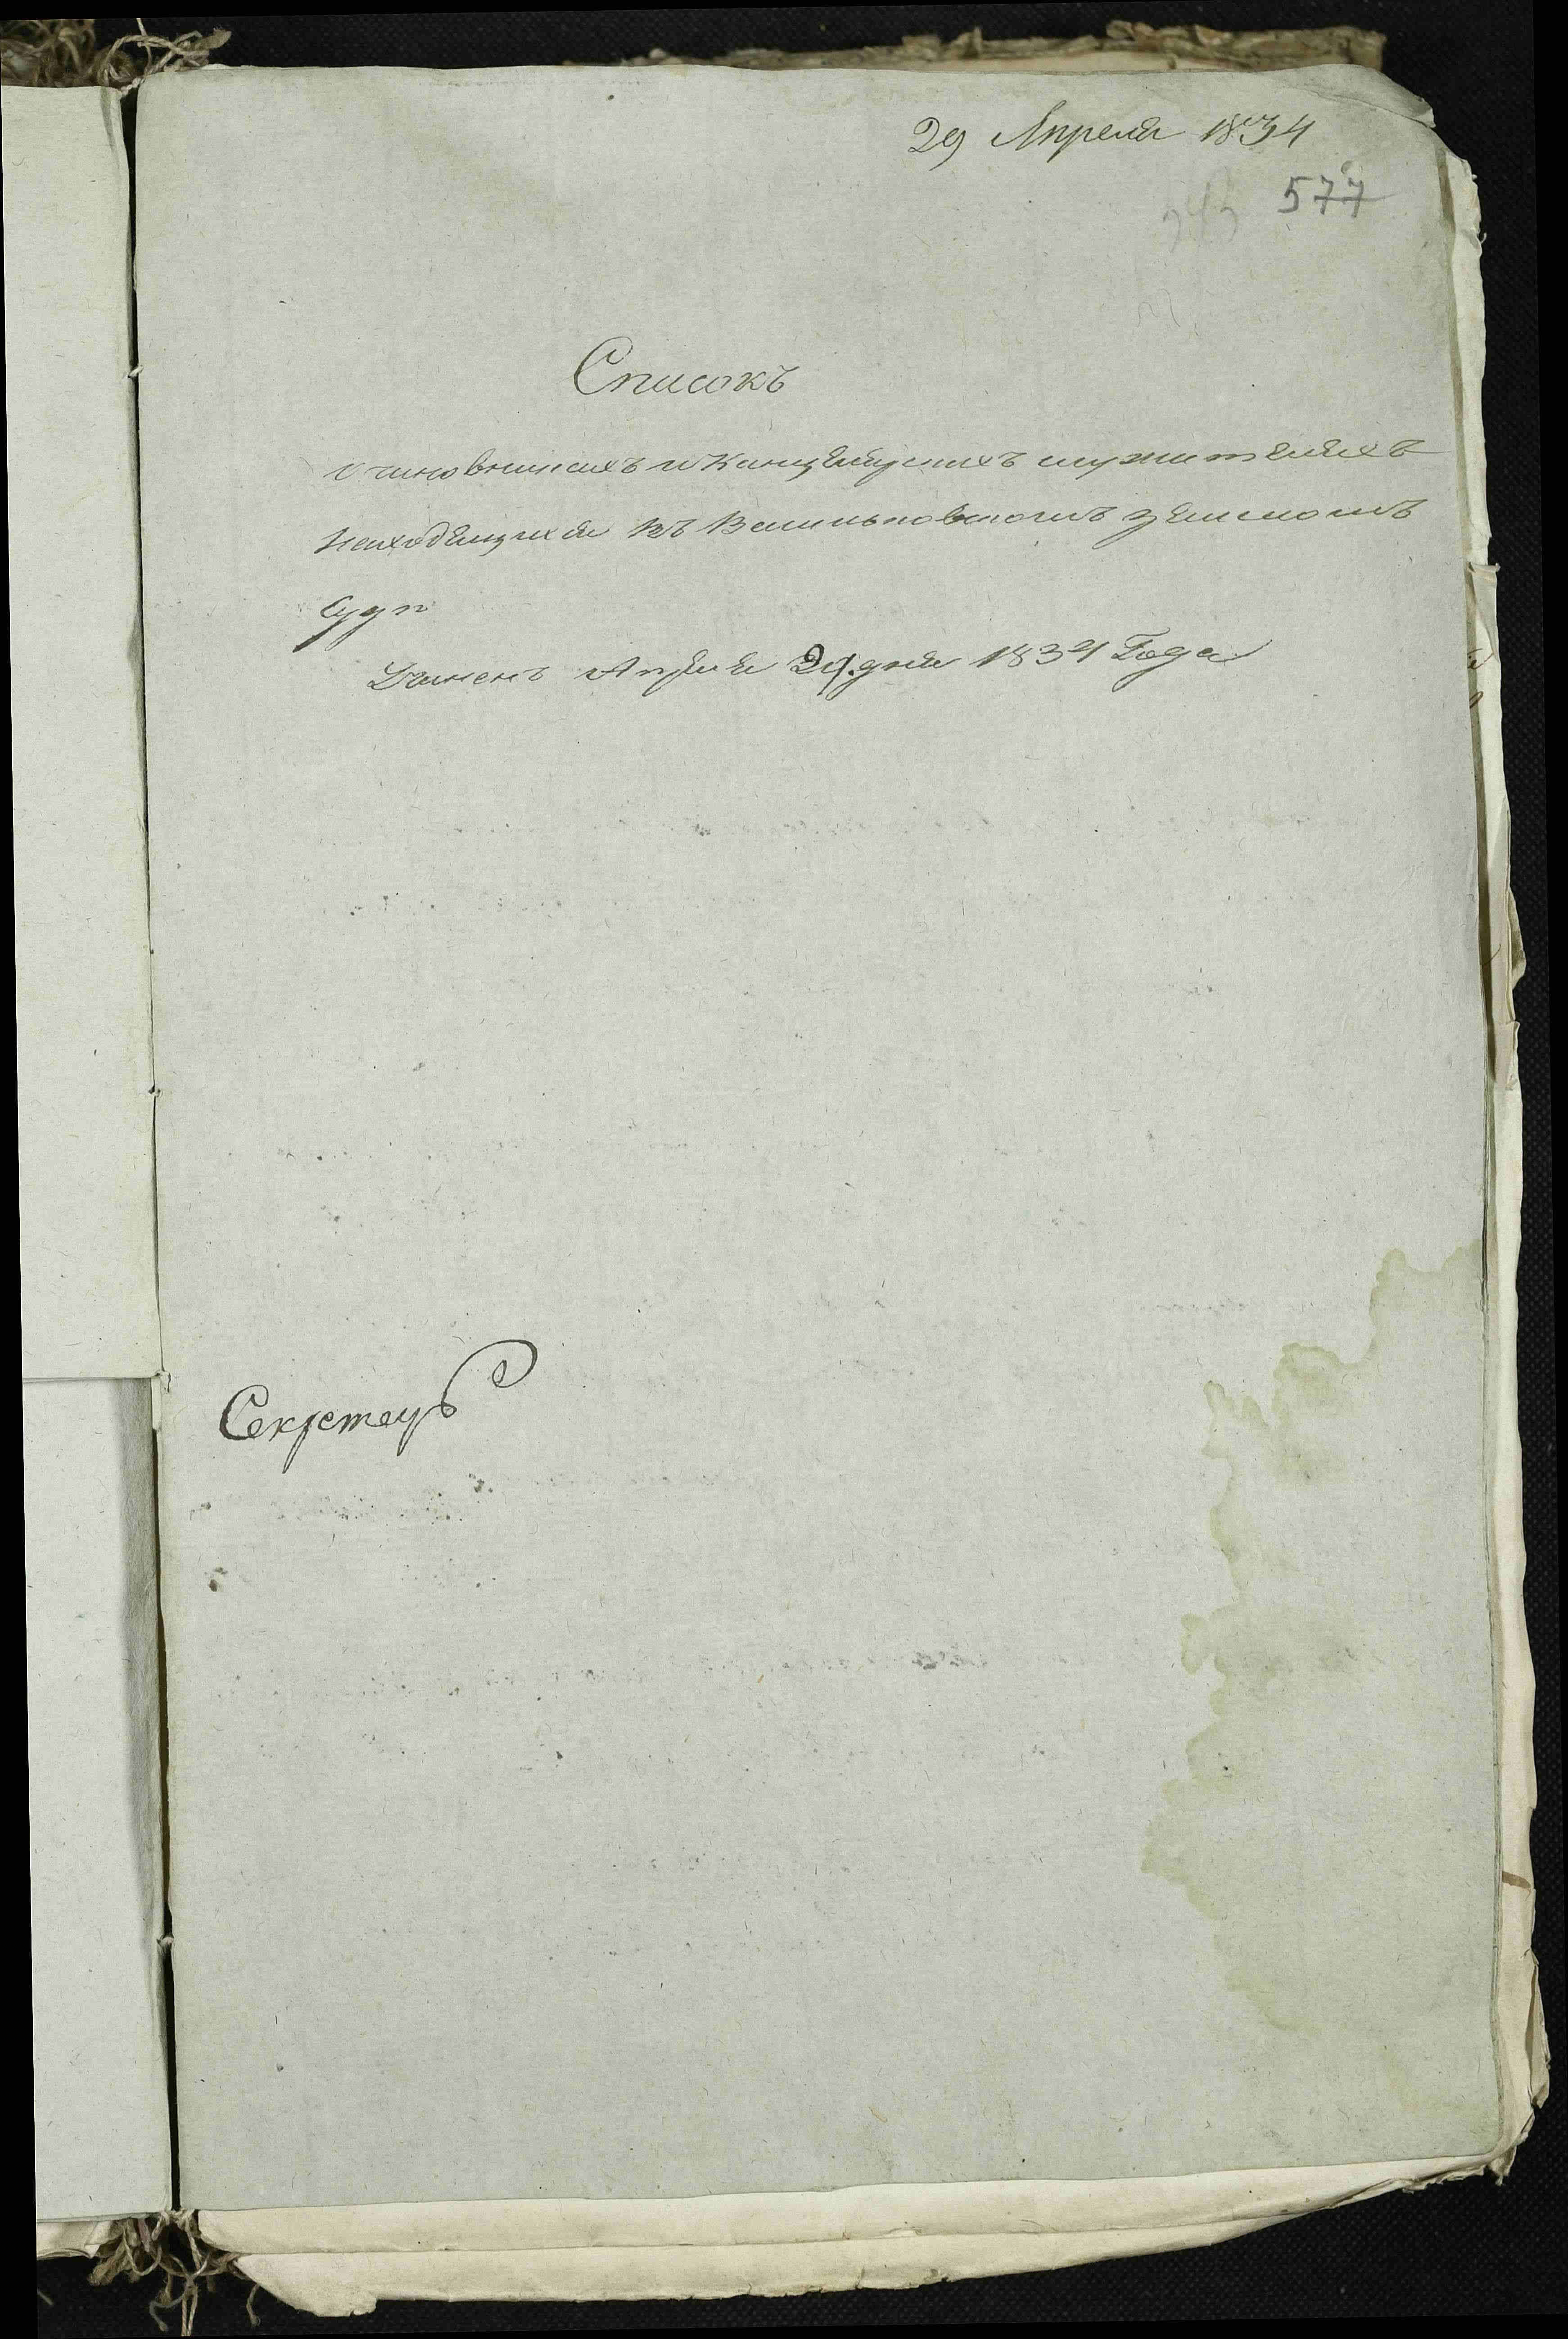 29 Апреля 1834
577
Списокъ
о чиновникахъ и Канцелярскихъ служителяхъ
находящихся въ Васильковскомъ земскомъ
Суде
Учиненъ Апреля 29 дня 1834 Года
Секретарь